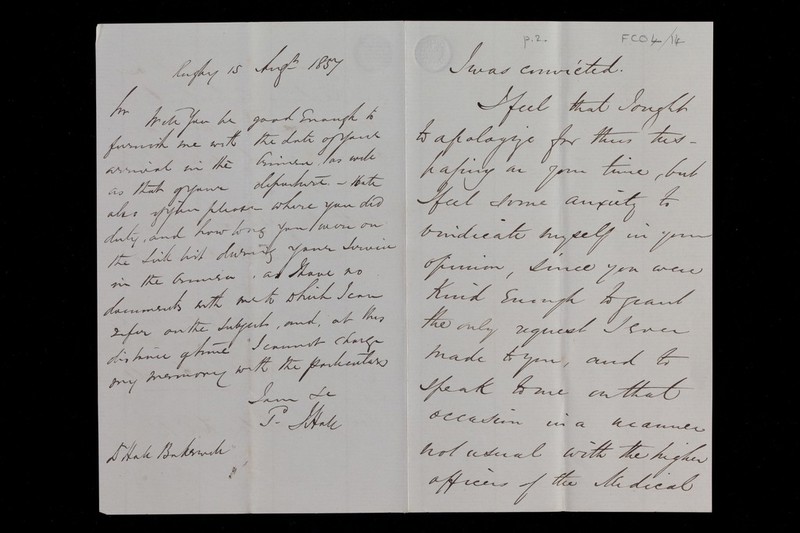 Rugby 15 Augt 1857
Sir
Will you be good enough to
furnish me with the date of your
arrival in the Crimea, as well
as that of your departure. - State
also if you please where you did
duty, and how long you were on
the Sick list during your Service
in the Crimea, as I have no
documents with me to which I can
refer on the Subject, and, at this
distance of time I cannot charge
my memory with the particulars
I am &c
J. Hall
Dr Hale Bakewell
p.2.
FCO4/14
I was convicted.
I feel that I ought
to apologize for thus tres-
passing on your time, but
I feel some anxiety to
vindicate myself in your
opinion, since you were
Kind Enough to grant
the only request I ever
made to you, and to
speak to me on that
occasion in a manner
not usual with the higher
officers of the Medical